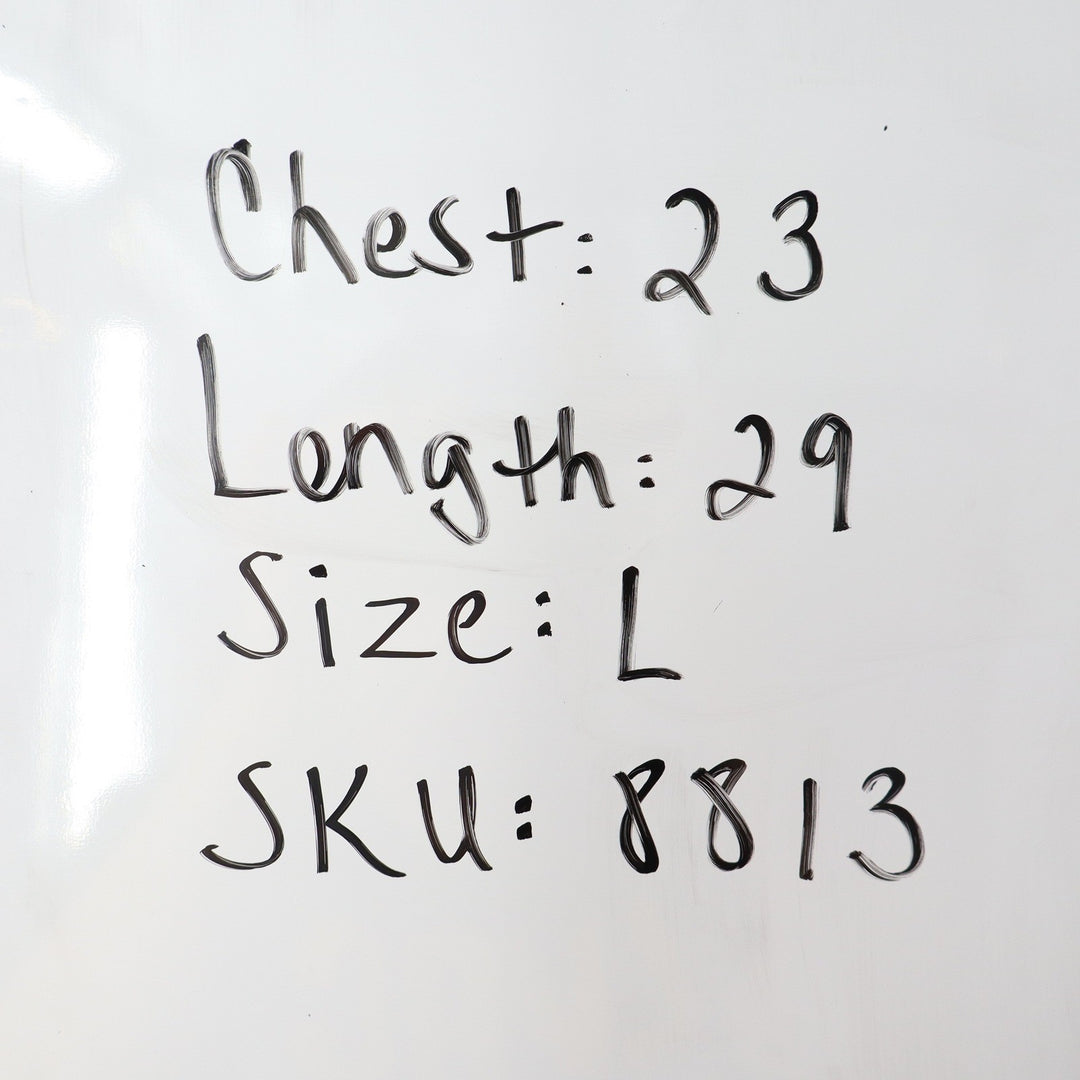 Chest: 23
Length: 29
Size: L
SKU: 8813